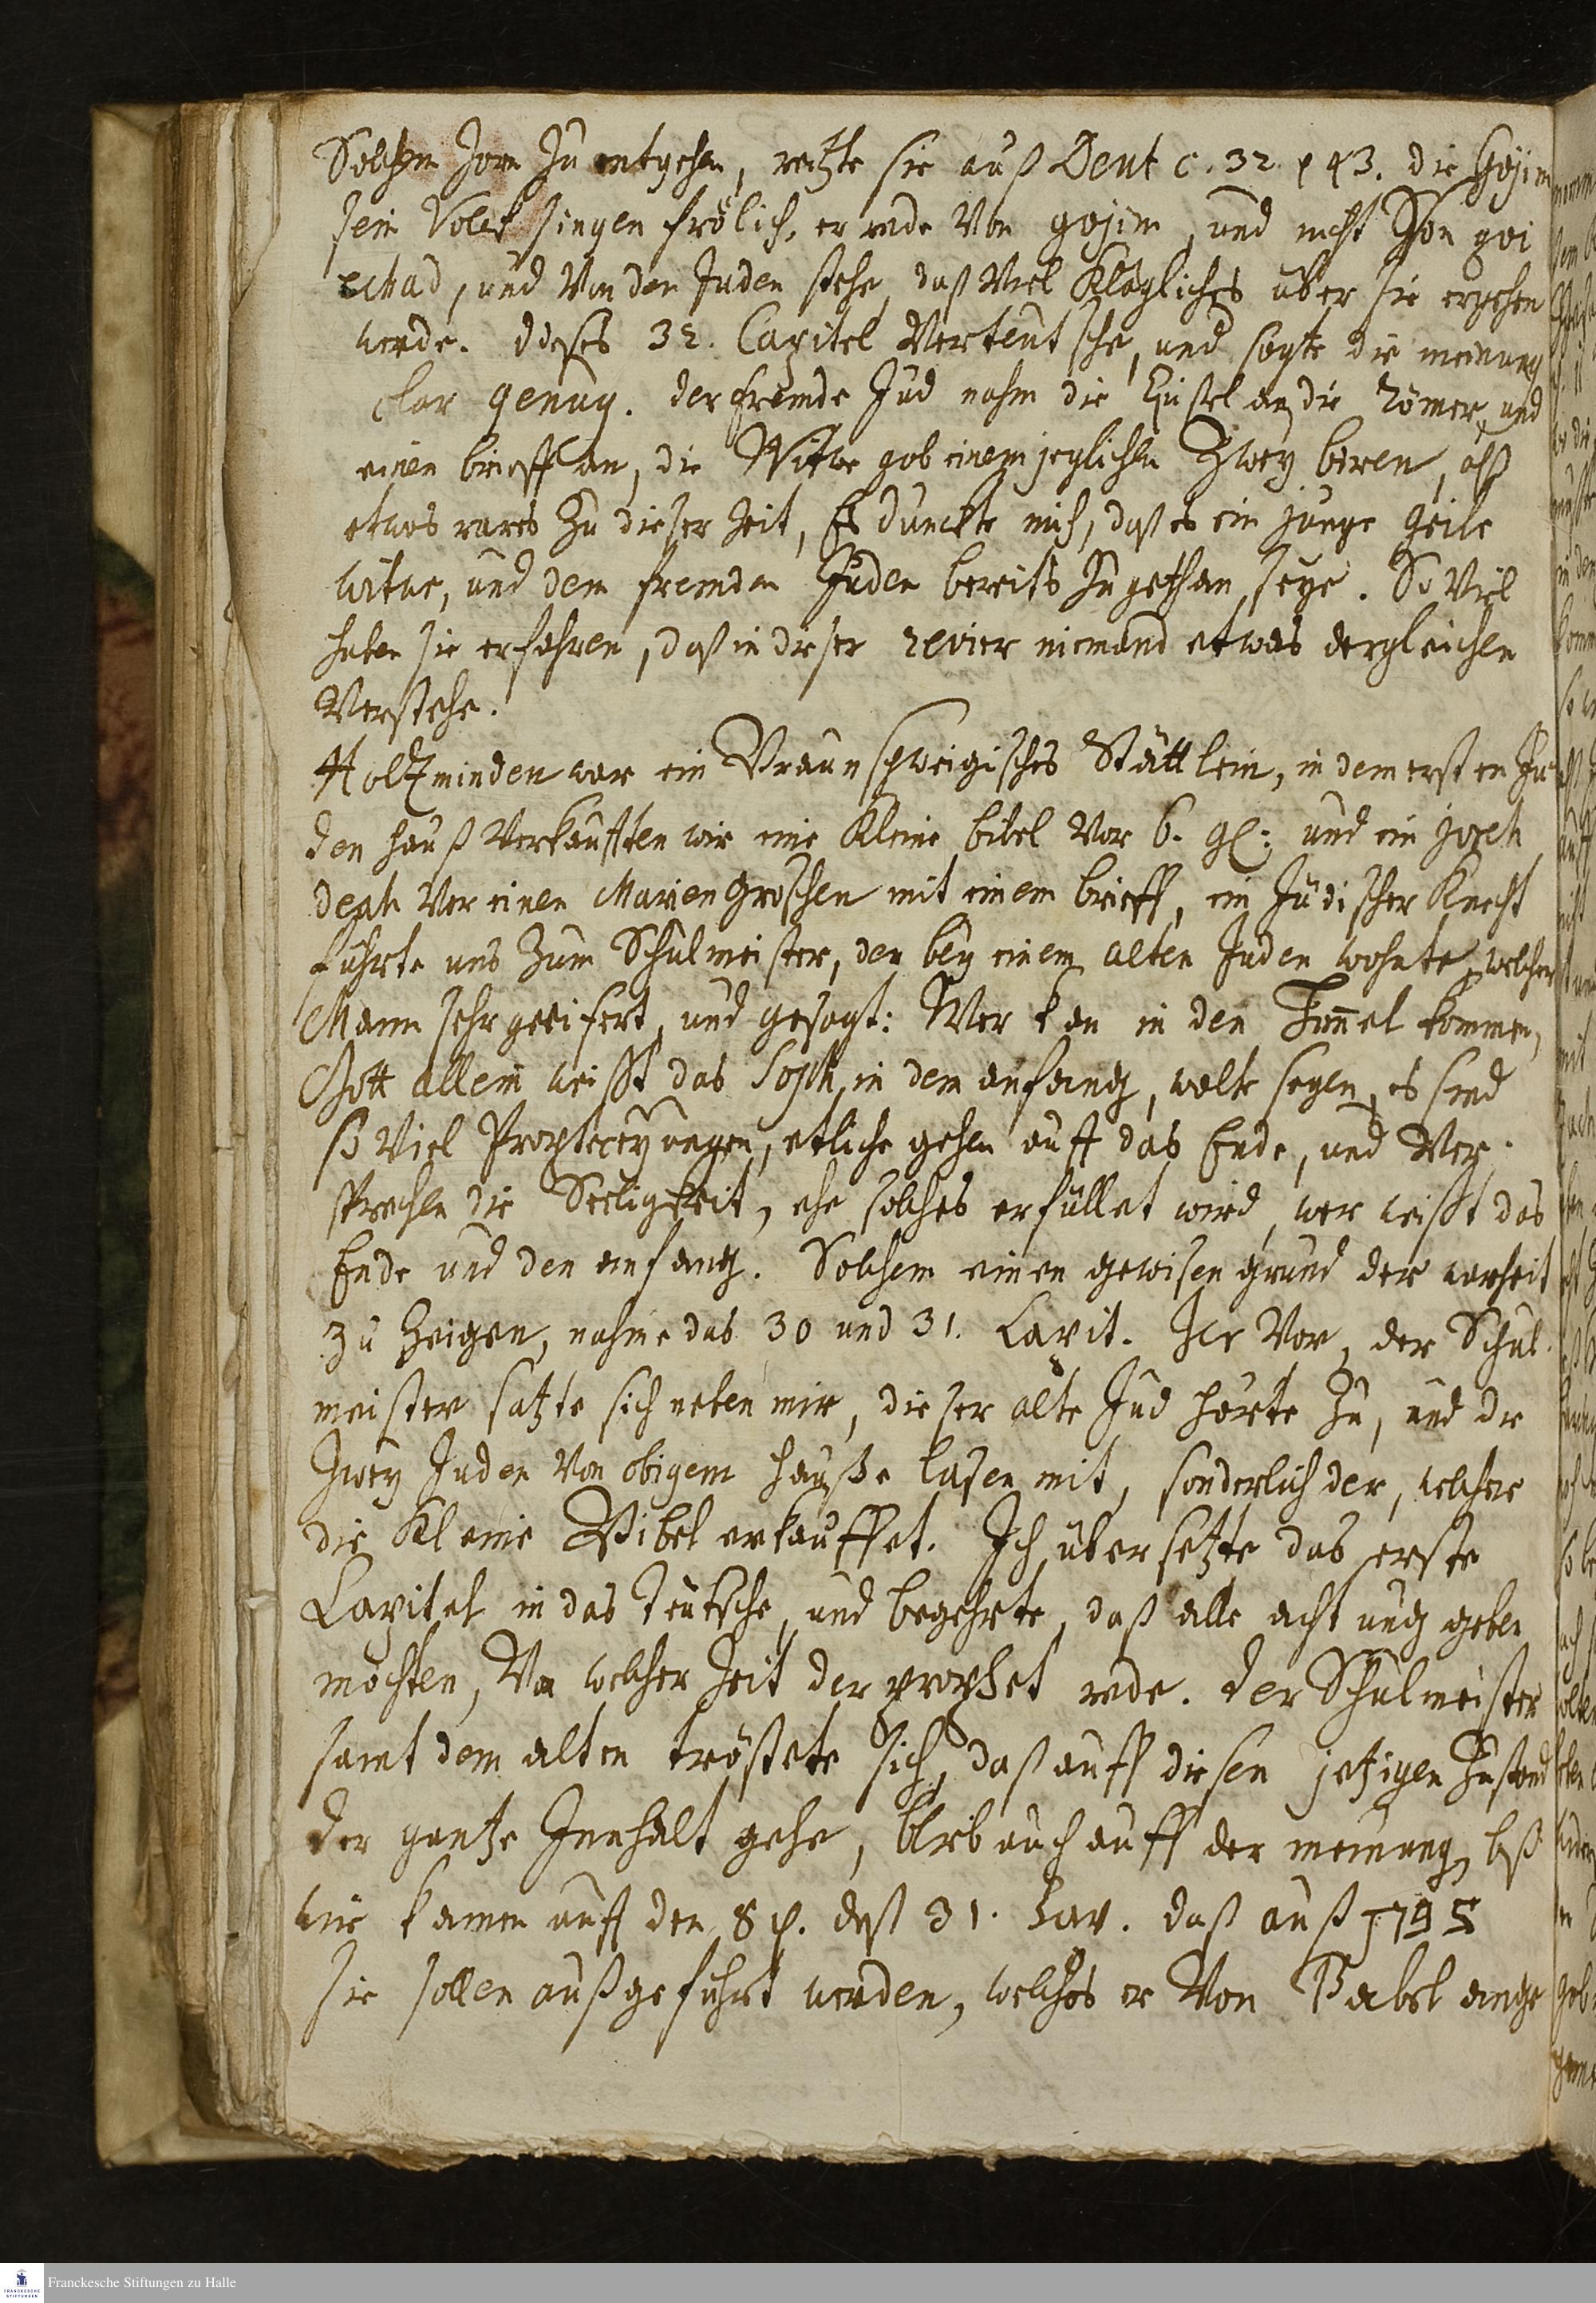 Solchem Zorn zu entgehen, reitzte sie auß Deut c. 32. v 43. die Gojim
sein Volck singen frölich. er rede Von gojim, und nicht Von goi
echad, und Von den Juden stehe, daß Viel Klägliches über sie ergehen
werde. dieses 32. Capitel Verteutsche, und sagte die meinung
clar genug. der fremde Jud nahm die Epistel an die Römer, und
einen brieff an, die Witwe gab einem jeglichen Zwey beren, alß
etwas rares Zu dieser Zeit, Es dunckte mich, daß es ein junge geile
witwe, und dem fremden Juden bereits Zugethan seye. So Viel
haben sie erfahren, daß in dieser revier niemand etwas dergleichen
Verstehe.
Holtzminden war ein Braunschweigisches Stättlein, in dem ersten Ju
den hauß Verkaufften wir eine Kleine bibel Vor 6. gl: und ein joreh
deah Vor einen Mariengroschen mit einem brieff, ein Jüdischer Knecht
führte uns Zum Schulmeister, der bey einem alten Juden wohnte, welcher
Mann sehr geeifert, und gesagt: Wer kan in den Himmel kommen,
Gott allein weißt das Soph, in dem anfang, wolte sagen, es sind
so Viel Propheceyungen, etliche gehen auff das Ende, und Ver-
sprechen die Seeligkeit, ehe solches erfüllet wird, wer weißt das
Ende und den anfang. Solchem einen gewisen grund der warheit
zu Zeigen, nahme das 30 und 31. Capit. Jer Vor, der Schul-
meister satzte sich neben mir, dieser alte Jud hörte Zu, und die
Zwey Juden Von obigem hauße lasen mit, sonderlich der, welcher
die Kleine Bibel erkauffet. Ich übersetzte das erste
Capitel in das Teutsche, und begehrte, daß alle achtung geben
möchten, Von welcher Zeit der prophet rede. der Schulmeister
samt dem alten tröstete sich, daß auff diesen jetzigen Zustand
der gantze Innhalt gehe, blieb auch auff der meinung, biß
wir kamen auff den 8 v. deß 31. Cap. daß auß צפון
sie sollen außgeführt werden, welches er Von Babel ange
Franckesche Stiftungen zu Halle